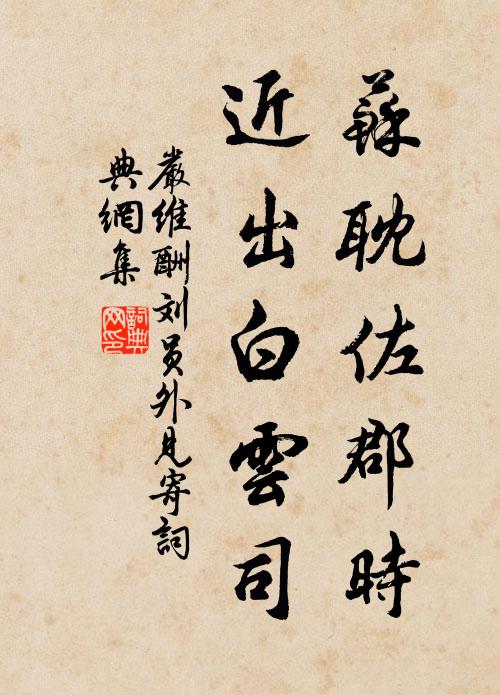 蘇耽佐郡時
近出白雲司
嚴維酬刘员外見寄詞
典網集
詞典
网印